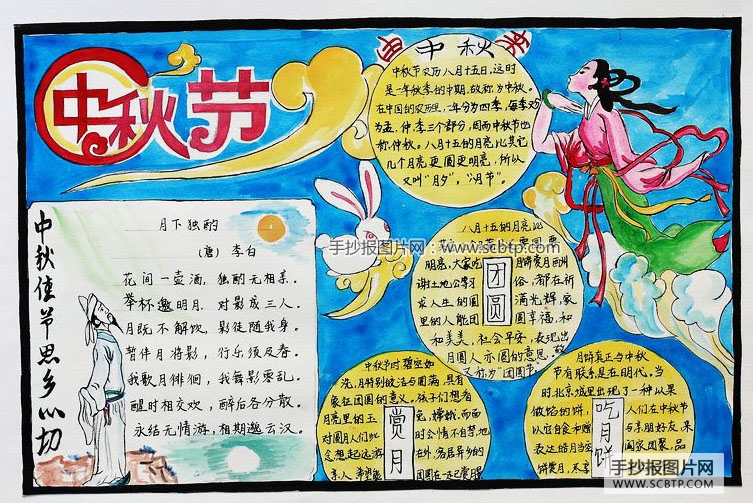 中秋节
中秋佳节思乡心切
月下独酌
(唐) 李白
花间一壶酒, 独酌无相亲。
举杯邀明月, 对影成三人。
月既不解饮, 影徒随我身。
暂伴月将影, 行乐须及春。
我歌月徘徊, 我舞影零乱。
醒时相交欢, 醉后各分散。
永结无情游, 相期邈云汉。
中秋
中秋节农历八月十五日, 这时
是一年秋季的中期, 故称为中秋。
在中国的农历里, 一年分为四季, 每季又分
为孟、仲、季三个部分, 因而中秋节也
称仲秋。八月十五的月亮比其它
几个月亮更圆更明亮, 所以
又叫"月夕", "八月节"。
手抄报图片网: www.scbtp.com
八月十五的月亮比
明亮, 大家吃 月饼赏月
谢土地公等习 俗, 都在祈
求人生的圆 满光辉, 家
里的人能团 圆幸福, 和
和美美, 社会平安, 表现出
月圆人亦圆的意思, 故
又称为"团圆节"。
团圆
中秋节时
象征团圆的意义。孩子们想看
月亮里的玉 兔, 嫦娥, 而
赏月
月饼真正与中秋
节有联系是在明代。当
时北京城里出现了一种以果
做馅的饼, 人们在中秋节
以在自食和赠 与亲朋好友, 来
表达皓月当空 阖家团聚, 品
饼赏月,
吃月饼
手抄报图片网
WWW.SCBTP.COM